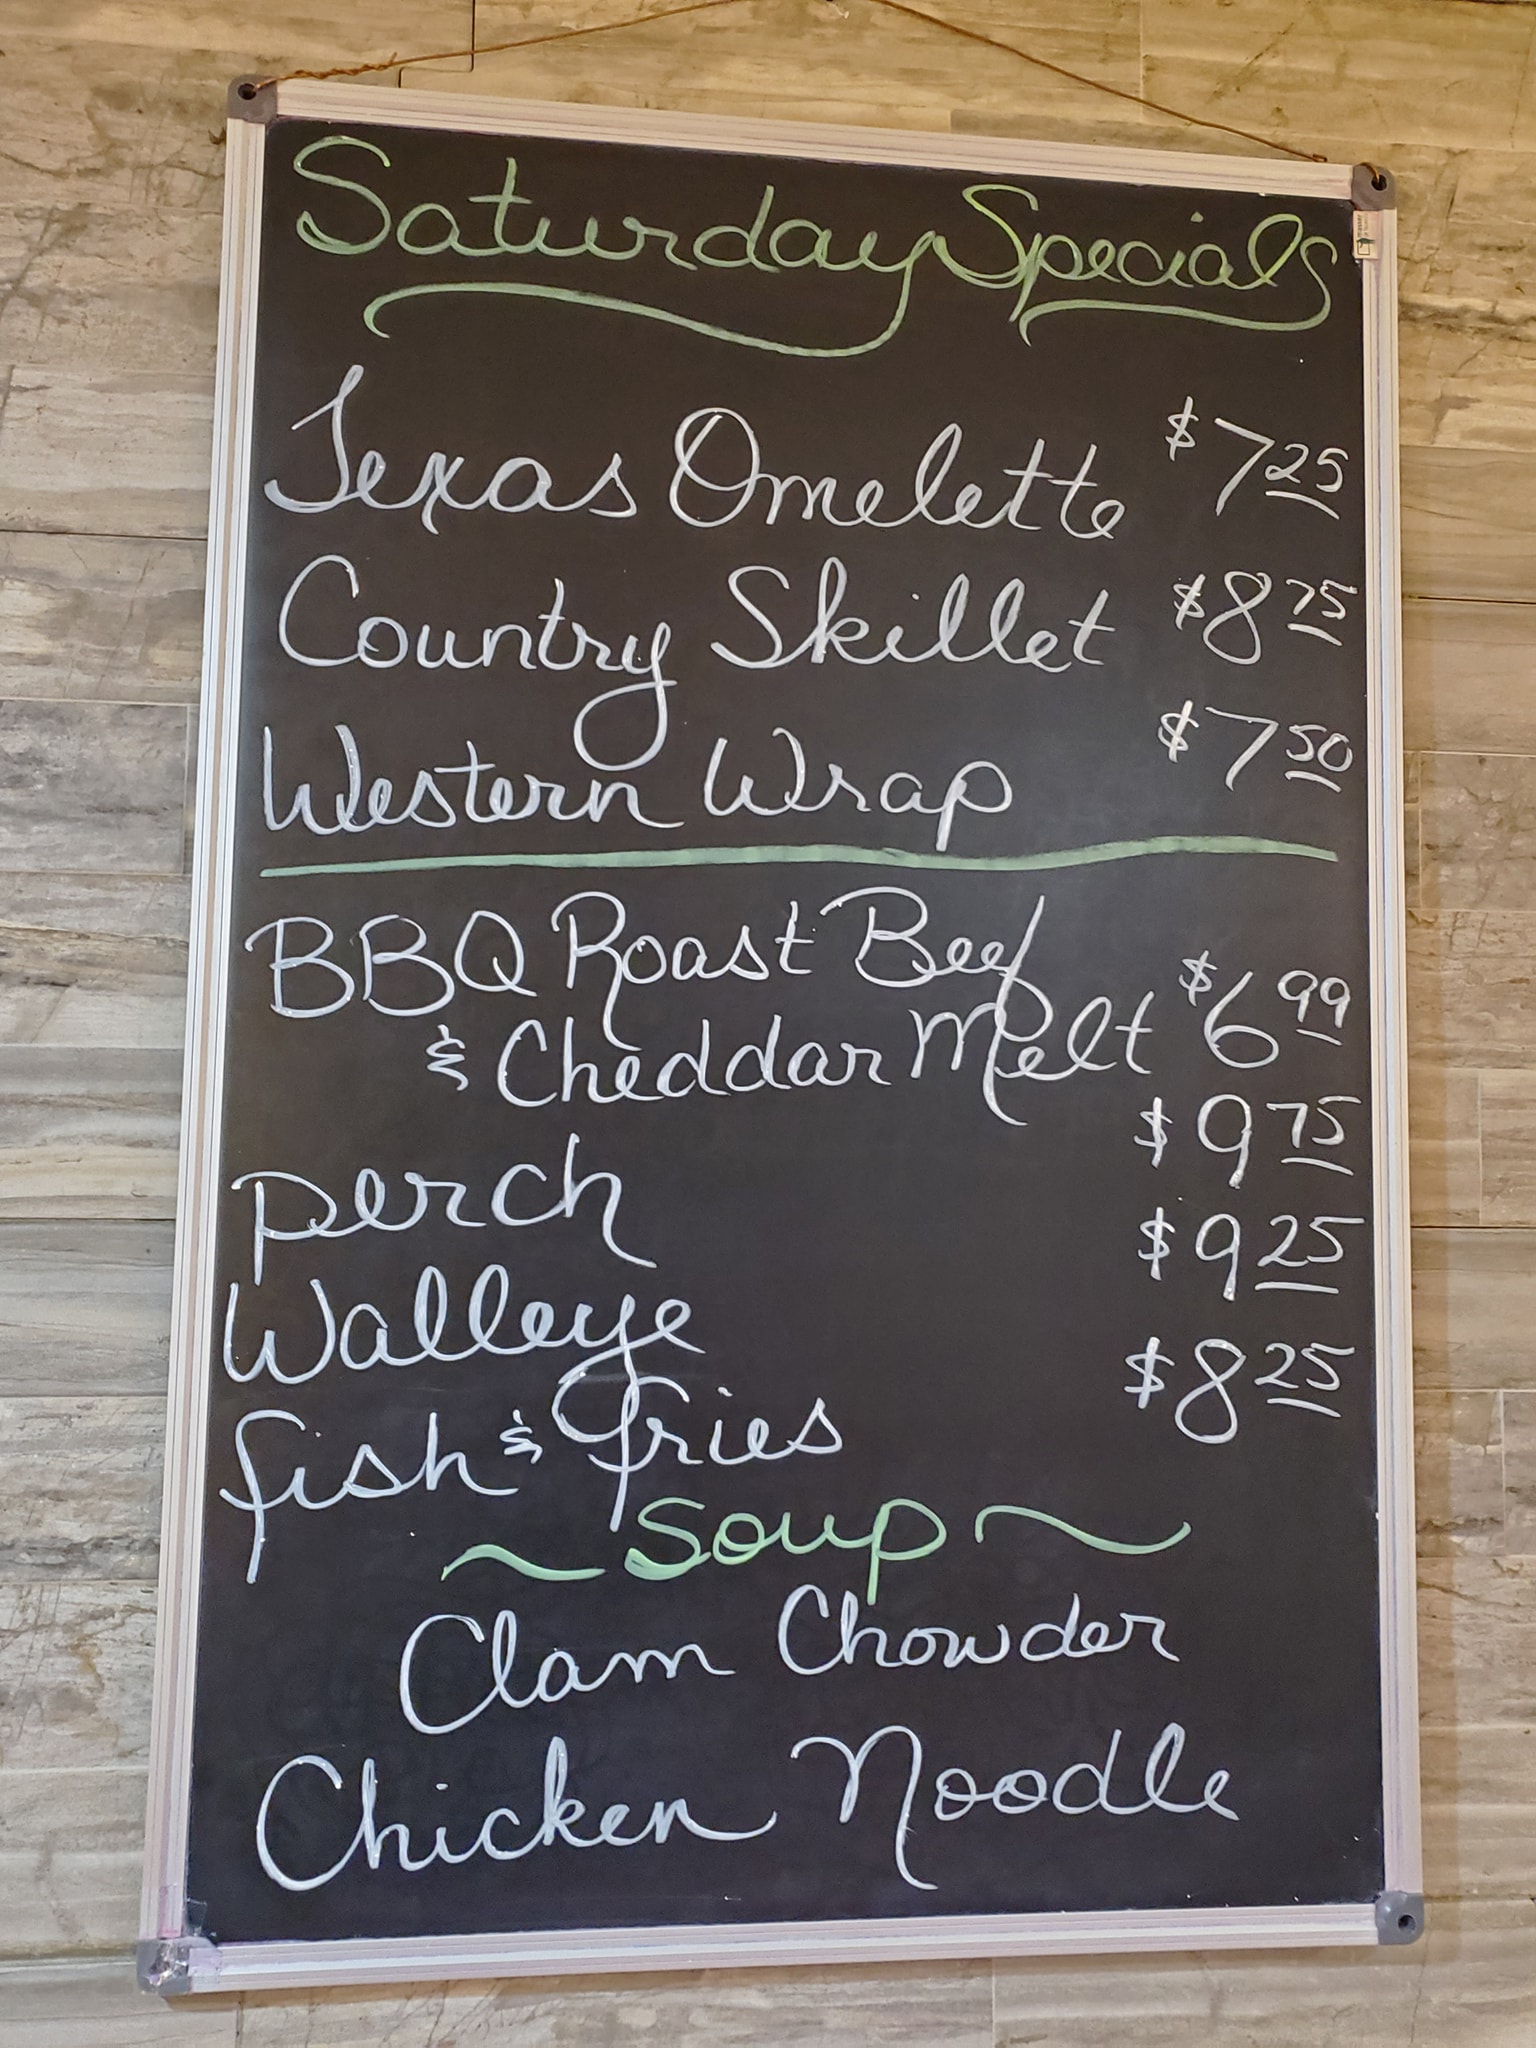 Saturday Specials
Texas Omelette $7.25
Country Skillet $8.75
Western Wrap $7.50
BBQ Roast Beef
& Cheddar Melt $6.99
Perch $9.75
Walleye $9.25
Fish & Fries $8.25
~ Soup ~
Clam Chowder
Chicken Noodle